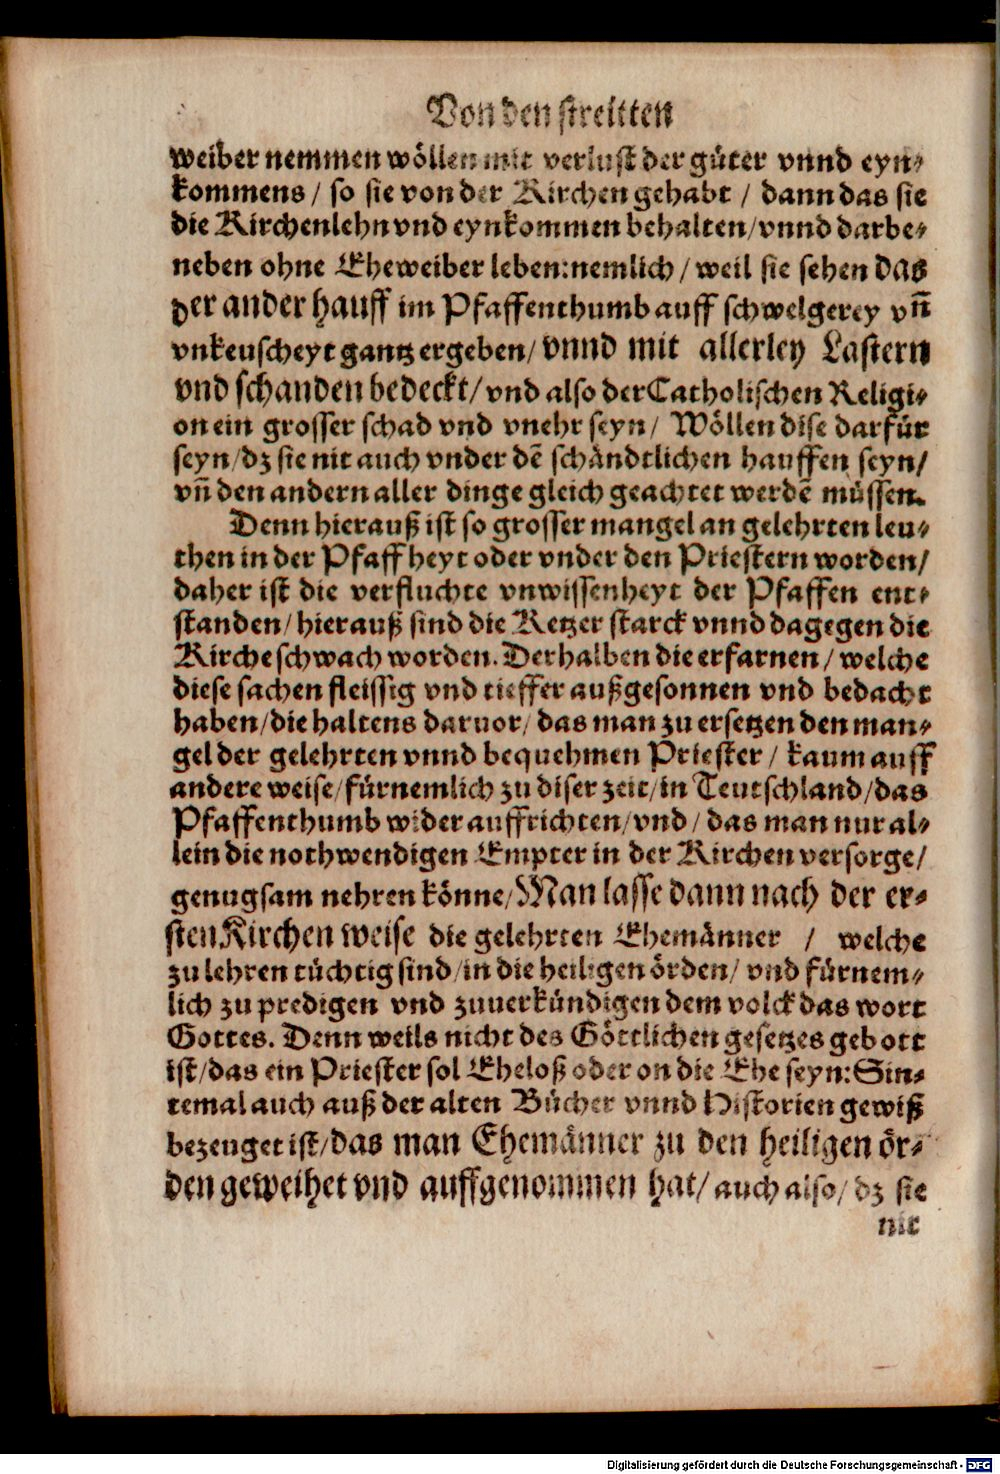 Von den streitten
weiber nemmen wöllen mit verlust der güter vnnd eyn⸗
kommens / so sie von der Kirchen gehabt / dann das sie
die Kirchenlehn vnd eynkommen behalten/vnnd darbe⸗
neben ohne Eheweiber leben:nemlich / weil sie sehen das
der ander hauff im Pfaffenthumb auff schwelgerey vñ
vnkeuscheyt gantz ergeben/ vnnd mit allerley Lastern
vnd schanden bedeckt/ vnd also der Catholischen Religi⸗
on ein grosser schad vnd vnehr seyn/ Wöllen dise darfür
seyn/dz sie nit auch vnder dē schändtlichen hauffen seyn/
vñ den andern aller dinge gleich geachtet werdē müssen.
Denn hierauß ist so grosser mangel an gelehrten leu⸗
then in der Pfaffheyt oder vnder den Priestern worden/
daher ist die verfluchte vnwissenheyt der Pfaffen ent⸗
standen/ hierauß sind die Ketzer starck vnnd dagegen die
Kirche schwach worden. Derhalben die erfarnen / welche
diese sachen fleissig vnd tieffer außgesonnen vnd bedacht
haben/die haltens daruor/ das man zu ersetzen den man⸗
gel der gelehrten vnnd bequehmen Priester / kaum auff
andere weise/fürnemlich zu diser zeit/in Teutschland/das
Pfaffenthumb wider auffrichten/vnd / das man nur al⸗
lein die nothwendigen Empter in der Kirchen versorge/
genugsam nehren könne/Man lasse dann nach der er⸗
sten Kirchen weise die gelehrten Ehemänner / welche
zu lehren tüchtig sind/in die heiligen örden/ vnd fürnem⸗
lich zu predigen vnd zuuerkündigen dem volck das wort
Gottes. Denn weils nicht des Göttlichen gesetzes gebott
ist/das ein Priester sol Eheloß oder on die Ehe seyn:Sin⸗
temal auch auß der alten Bücher vnnd Historien gewiß
bezeuget ist/das man Ehemänner zu den heiligen ör⸗
den geweihet vnd auffgenommen hat/ auch also/ dz sie
nit
Digitalisierung gefördert durch die Deutsche Forschungsgemeinschaft - DFG